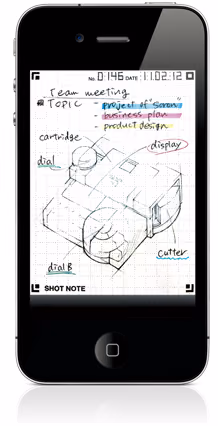 No. 0:146 DATE 1:1.02:12
Team meeting
TOPIC - project of "Soron"
- business plan
- product design
cartridge
display
dial
dial B
cutter
SHOT NOTE